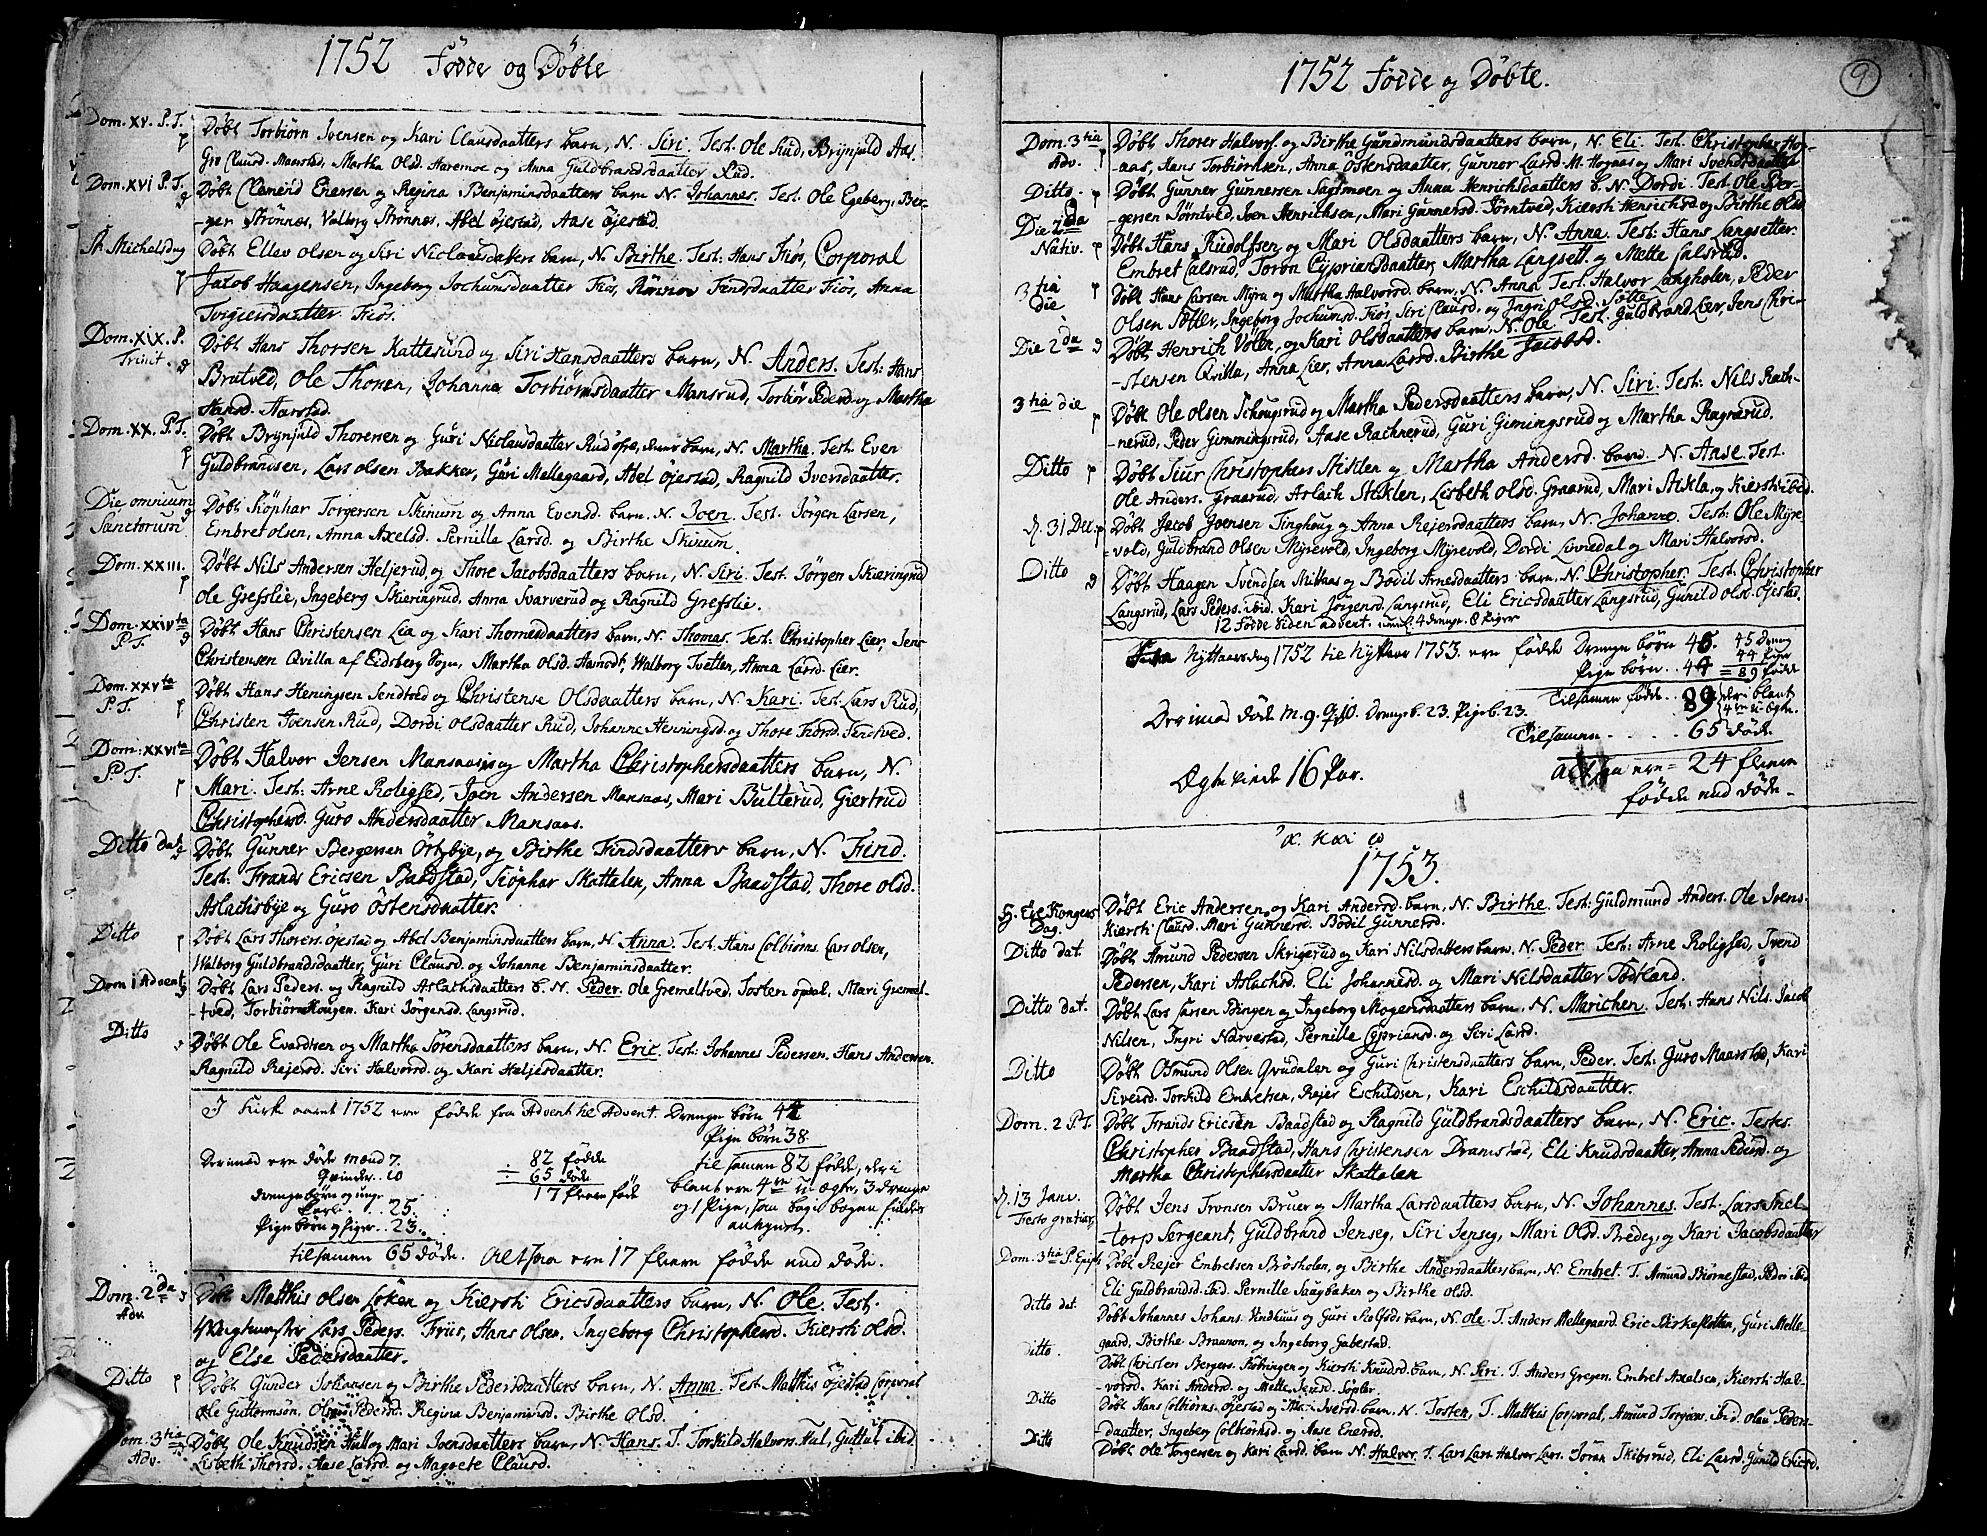 1752 Födde og Döbte
Dom. XV. P. T.
Döbt Torbiörn Ivensen og Kari Clausdaatters barn, N. Siri. Test. Ole Rud, Brynjuld
Gro Clausd. Martha Olsd. Haremoe og Anna Guldbrandsdaatter Rud.
Dom. XVI P. T.
Döbt Clemend Enersen og Regina Benjaminsdaatters barn N. Johannes. Test. Ole Egeberg, Ber-
ger Strönnes, Valborg Strönnes, Abel Öjestad, Aase Öjestad.
St. Michelsdag
Döbt Ellev Olsen og Siri Niclausdaters barn, N. Birthe. Test: Hans Fiös, Corporal
Jacob Haagensen, Ingeborg Jochumsdaatter Fiös, Rönnov Findsdaatter Fiös, Anna
Torgiersdaatter Fiös.
Dom. XIX. P.
Trinit.
Döbt Hans Thorsen Kattesund og Siri Hansdaatters barn, N. Anders. Test: Hans
Bratved, Ole Thorsen, Johanna Torbiörnsdaatter Mansrud, Torbiör Pedersd. og Martha
Hansd. Harstad.
Dom. XX. P. T.
Döbt Brynjuld Thorersen og Guri Niclausdaatter Rud barn, N. Martha. Test. Even
Guldbrandsen, Lars Olsen Bakker, Guri Mellegaard, Abel Öjestad, Ragnild Iversdaatter.
Die omnium
Sanctorum
Döbt Siöphar Torgersen Skinum og Anna Evensd. barn. N. Joen. Test. Jörgen Larsen,
Embret Olsen, Anna Axelsd. Pernille Larsd. og Birthe Skinum.
Dom. XXIII.
Döbt Nils Andersen Heljerud og Thore Jacobsdaatters barn, N. Siri. Test. Jörgen Skieringrud
Ole Grefslie, Ingeborg Skieringrud, Anna Svarverud og Ragnild Grefslie.
Dom. XXIV ta
P. T.
Döbt Hans Christensen Lia og Kari Thomesdaatters barn, N. Thomas. Test. Christopher Lier, Jens
Christensen Qvilla af Eidsberg Sogn, Martha Olsd. Walborg Tvetten, Anna Larsd. Lier.
Dom. XXV ta
P. T.
Döbt Hans Heningsen Sendtved og Christense Olsdaatters barn, N. Kari. Test. Lars Rud,
Christen Ivensen Rud, Dordi Olsdaatter Rud, Johanne Henningsd. og Thore
Dom. XXVI ta
P. T.
Döbt Halvor Jensen Mansaas og Martha Christophersdaatters barn, N.
Mari. Test: Arne Roligsed, Joen Andersen Mansaas, Mari Butterud, Giertrud
Christophersd. Guro Andersdaatter Mansaas.
Ditto dat.
Döbt Gunner Bergersen Örtzbye, og Birthe Findsdaatters barn, N. Find.
Test: Frands Ericsen Baadstad, Siöphar Skattalen, Anna Baadstad, Thore Olsd.
Aslachsbye og Guro Östensdaatter.
Ditto
Döbt Lars Thorers. Öjestad og Abel Benjaminsdaatters barn, N. Anna. Test. Hans Colbiörns. Lars Olsen,
Walborg Guldbrandsdaatter, Guri Clausd. og Johanne Benjaminsdaatter.
Dom 1 Advent:
Döbt Lars Peders. og Ragnild Aslachsdaatters b. N. Peder. Ole Gremeltved, Tosten Opsal, Mari Gremel-
-tved, Torbiörn Kougen. Kari Jörgensd. Langsrud.
Ditto
Döbt Ole Evardtsen og Martha Sörensdaatters barn, N. Eric. Test: Johannes Pedersen, Hans Andersen
Ragnild Rejersd. Siri Halvorsd. og Kari Heljesdaatter.
I Kirk aaret 1752 ere födde fra Advent til Advent. Drenge börn 44
Pige börn 38.
Derimod ere döde mænd 7.
Qvinder. 10
Drengebörn og unge
Karle . 25.
Pige börn og Piger .. 23.
tilsamen 65 döde.
82 födde
÷ 65 döde
17 fleere föde
til samen 82 födde, der i
blant ere 4re u-ægte, 3 drenge
og 1 Pige, som bag i bogen findes
antegnet.
Altsaa ere 17 fleere födde end döde.
Dom. 2 da
Adv.
Döbt Matthis Olsen Löken og Kiersti Ericsdaatters barn, N. Ole. Test.
Lars Peders. Friis, Hans Olsen, Ingeborg Christophersd. Kiersti Olsd.
og Else Pedersdaatter.
Ditto
Döbt Gunder Johansen og Birthe Pedersdaatters barn, N. Anna. Test Matthis Öjestad Corporal
Ole Guttormsön, Pedersd. Regina Benjaminsd. Birthe Olsd.
Dom. 3 tia
Adv.
Döbt Ole Knudsen Hull og Mari Joensdaatters barn, N. Hans. T. Torkild Halvors. Hul, Guttul ibid
Lisbeth Thorsd. Aase Larsd. og Magrete Clausd.
9
1752 Födde og Döbte.
Dom. 3 tia
Adv.
Döbt Thorer Halvors. og Birthe Gundmundsdaatters barn, N. Eli. Test. Christopher Hog-
aas, Hans Torbiörnsen, Anna Östensdaatter, Gunner Larsd. M. Hogaas og Mari Svendsdaatter
Ditto
Döbt Gunner Gunnersen Sagtmoen og Anna Henrichsdaatters b. N. Dordi. Test. Ole Ber-
gersen Jörntved, Iven Henrichsen, Mari Gunnersd. Jörntved, Kiersti Henrichsd og Birthe Olsd.
Die 2 da
Nativ.
Döbt Hans Rudolfsen og Mari Olsdaatters barn, N. Anna. Test: Hans Langsetter.
Embret Calsrud, Toron Cypriansdaatter, Martha Langsett. og Mette Calsrud.
3 tia
die
Döbt Hans Larsen Myra og Martha Halvorsd. barn, N. Anna Test. Halvor Langholen, Peder
Olsen Sötter, Ingeborg Jochumsd. Fiös, Siri Clausd. og Ingri Olsd. Sötter.
Die 2 da
Döbt Henrich Völen, og Kari Olsdaatters barn, N. Ole. Test. Guldbrand Lier, Jens Chri-
-stensen Qvilla, Anna Lier, Anna Larsd. Birthe Jacobsd.
3 tia die
Döbt Ole Olsen Schougsrud og Martha Pedersdaatters barn, N. Siri. Test: Nils Rach-
-nerud, Peder Gimmingsrud, Aase Rachnerud, Guri Gimingsrud og Martha Ragnerud.
Ditto
Döbt Siur Christophers Stiklen og Martha Andersd. barn. N. Anse. Test.
Ole Anders. Graarud, Aslach Stiklen, Lisbeth Olsd. Graarud, Mari Stikla, og Kiersti ibid.
d. 31 Dec.
Döbt Jacob Joensen Tinghoug og Anna Rejersdaatters barn, N. Johanne. Test: Ole Myre
-vold, Guldbrand Olsen Myrevold, Ingeborg Myrevold, Dordi Livredal og Mari Halvorsd.
Ditto
Döbt Haagen Svendsen Mikaas og Bodil Arnesdaatters barn, N. Christopher. Test. Christopher
Langsrud, Lars Peders. ibid. Kari Jörgensd. Langsrud, Eli Ericsdaatter Langsrud, Gunild Olsd. Öjestad.
12 födde siden advent. 4 drenge. 8 piger
Fra Nyttaarsdag 1752 til Nyttaar 1753. ere födde Drenge börn 45.
Pige börn .. 44
45 Dreng
44 Pige
= 89 födde
Tilsamen födde .. 89 der i blant
4re u-ægte.
Derimod döde M. 9. Q. 10. Drenge b. 23. Pige b. 23.
Tilsamen ..... 65 döde.
Altsaa ere = 24 fleere
födde end döde.
Ægte viede 16 Par.
1753.
H. tre Kongers
Dag.
Döbt Eric Andersen og Kari Andersd. barn, N. Birthe. Test: Guldmund Anders. Ole Ivens.
Kiersti Clausd. Mari Gunnersd. Bodil Gunnersd.
Ditto dat.
Döbt Amund Pedersen Skrigerud og Kari Nilsdatters barn. N. Peder. Test: Arne Roligsed, Svend
Pedersen, Kari Aslachsd. Eli Johannesd. og Mari Nilsdaatter Födtland.
Ditto dat.
Döbt Lars Larsen Bingen og Ingeborg Mogensdaatters barn, N. Marichen. Test: Hans Nils. Jacob
Nilsen, Ingri Narvestad, Pernille Cypriansd. og Siri Larsd.
Ditto
Döbt Osmund Olsen Grudalen og Guri Christensdaatters barn, Peder. Test: Guro Maarstad, Kari
Siversd. Torkild Embretsen, Rejer Eschildsen, Kari Eschildsdaatter.
Dom. 2 P. T.
Döbt Frands Ericsen Baadstad og Ragnild Guldbrandsdaatters barn, N. Eric. Testes.
Christopher Baadstad, Hans Christensen Dramstad, Eli Knudsdaatter, Anna Pedersd. og
Martha Christophersdaatter Skattalen
d. 13 Janv.
Festo gratiar.
Döbt Jens Tronsen Bruer og Martha Larsdaatters barn, N. Johannes. Test. Lars Snel-
-torp Sergeant, Guldbrand Jenseg, Siri Jenseg, Mari Olsd. Bredeg, og Kari Jacobsdaatter
Dom. 3 tia P. Epiph.
Döbt Rejer Embretsen Brösholen, og Birthe Andersdaatters barn, N. Embret. T. Amund Biörnestad, Peder ibid
Eli Guldbrandsd. ibid. Pernille Saugbaken og Birthe Olsd.
ditto dat.
Döbt Johannes Johans. Vindhuus og Guri Rolfsds barn, N. Ole. T. Anders Mellegaard. Eric Perkesletten, Guri Melle-
gaard, Birthe Braanon, og Ingeborg Gabestad.
Ditto.
Döbt Christen Bergers. Kobringen og Kiersti Knudsd. barn, N. Siri. T. Anders Gregers. Embret Axelsen, Kiersti Hal-
-vorsd. Kari Andersd. og Mette Jensd. Söpler.
Ditto
Döbt Hans Colbiörns. Öjestad og Mari Iversd. barn. N. Tosten, T. Matthis Corporal, Amund Torgiers. ibid. Olau Peders-
daatter, Ingeborg Colbiörnsd. og Aase Enersd.
Ditto
Döbt Ole Torgersen og Kari Larsd. barn N. Halvor. T. Lars Lars. Halvor Lars. Jöran Skibsrud, Eli Larsd. Gunild Ericsd.